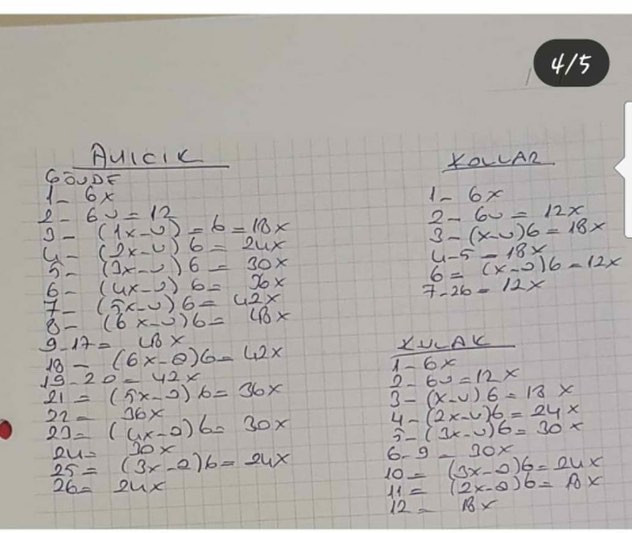 4/5
AYICIK
GÖVDE
1- 6x
2- 6v = 12
3- (1x-v) = 6 = 18x
4- (2x-v) 6 = 24x
5- (3x-v) 6 = 30x
6- (4x-v) 6 = 36x
7- (5x-v) 6 = 42x
8- (6x-v) 6 = 48x
9-17 = 48x
18- (6x-0)6 = 42x
19-20 = 42x
21 = (5x-0) 6 = 36x
22 = 36x
23 = (4x-0) 6 = 30x
24 = 30x
25 = (3x-0) 6 = 24x
26 = 24x
KOLLAR
1- 6x
2- 6v = 12x
3- (x-v)6 = 18x
4-5 = 18x
6 = (x-0)6 = 12x
7-26 = 12x
KULAK
1- 6x
2- 6v = 12x
3- (x-v) 6 = 18 x
4- (2x-v)6 = 24x
5- (3x-v)6 = 30x
6-9- 30x
10 = (3x-0)6 = 24x
11 = (2x-0)6 = 18x
12 = 18x